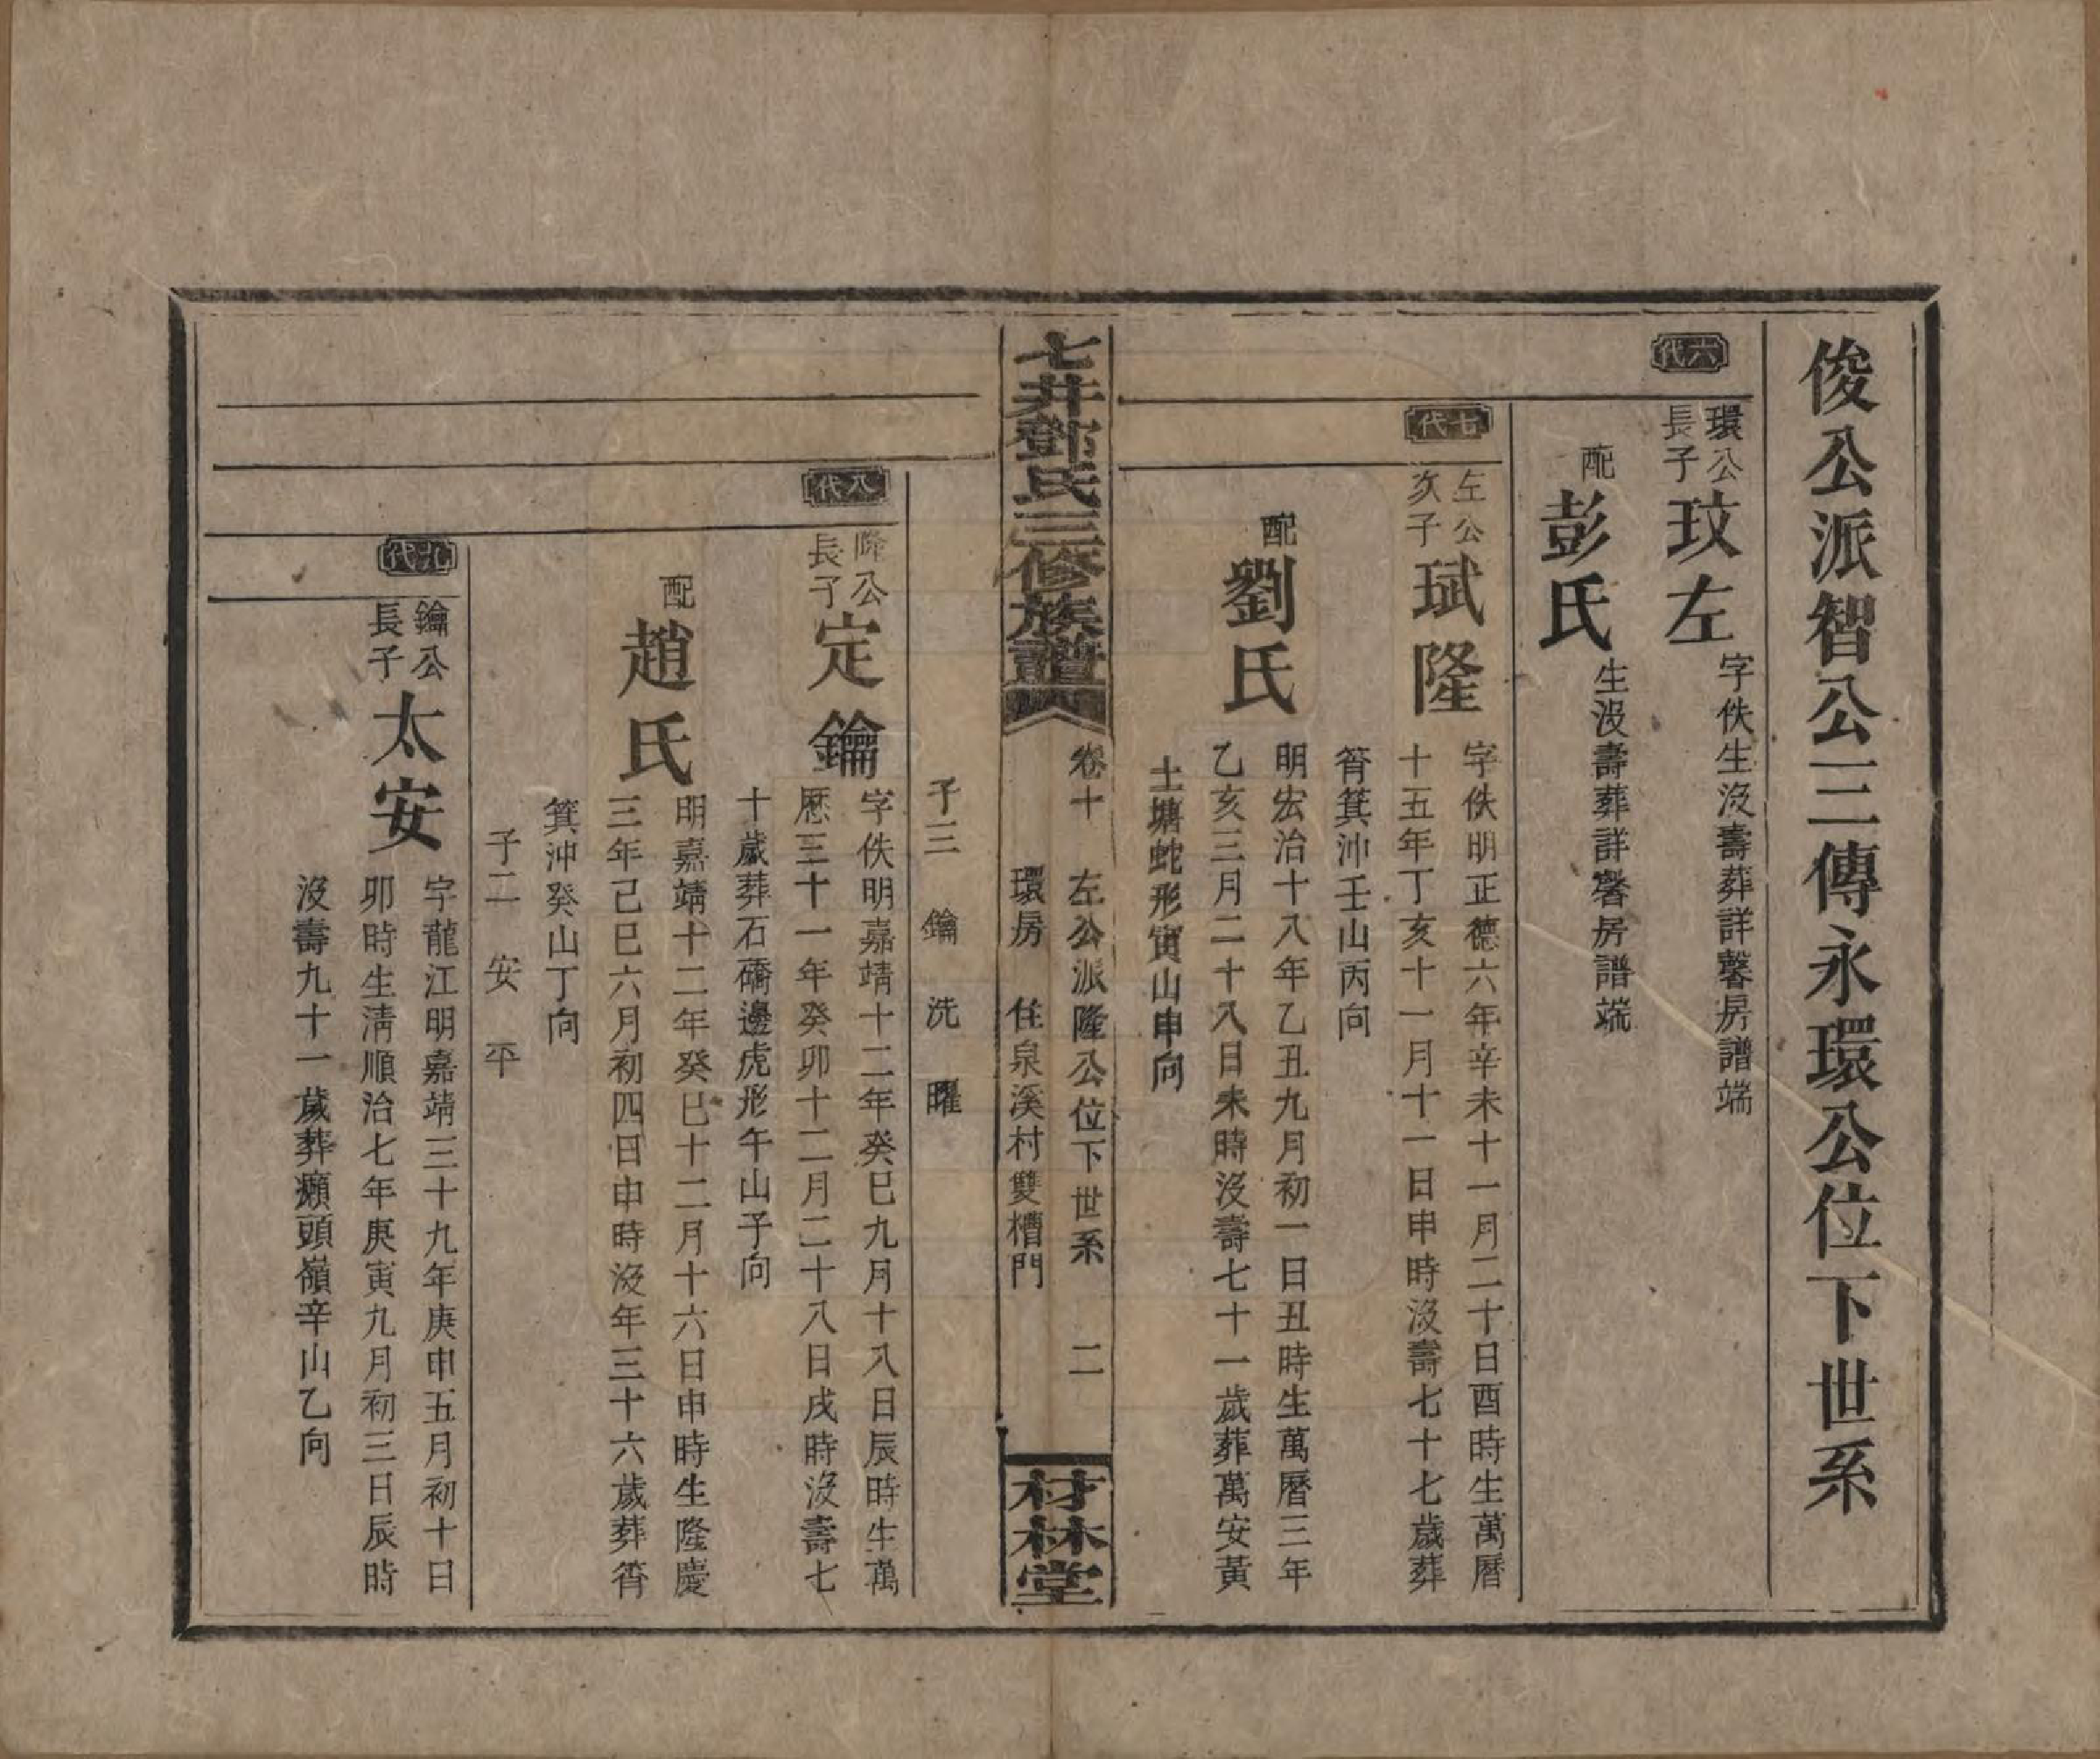 俊公派智公三傳永環公位下世系
六代
環公
長子
玟左
字佚生沒壽葬詳馨房譜端
配
彭氏
生沒壽葬詳馨房譜端
七代
左公
次子
珷隆
字佚明正德六年辛未十一月二十日酉時生萬曆
十五年丁亥十一月十一日申時沒壽七十七歲葬
筲箕沖壬山丙向
配
劉氏
明宏治十八年乙丑九月初一日丑時生萬曆三年
乙亥三月二十八日未時沒壽七十一歲葬萬安黃
土塘蛇形寅山申向
七井鄧氏三修族譜
卷十 左公派隆公位下世系 二
環房 住泉溪村雙槽門
材林堂
子三 鑰 洗 曜
八代
隆公
長子
定鑰
字佚明嘉靖十二年癸巳九月十八日辰時生萬
歷三十一年癸卯十二月二十八日戌時沒壽七
十歲葬石礄邊虎形午山子向
配
趙氏
明嘉靖十二年癸巳十二月十六日申時生隆慶
三年己巳六月初四日申時沒年三十六歲葬筲
箕沖癸山丁向
子二 安 平
九代
鑰公
長子
太安
字龍江明嘉靖三十九年庚申五月初十日
卯時生清順治七年庚寅九月初三日辰時
沒壽九十一歲葬癩頭嶺辛山乙向